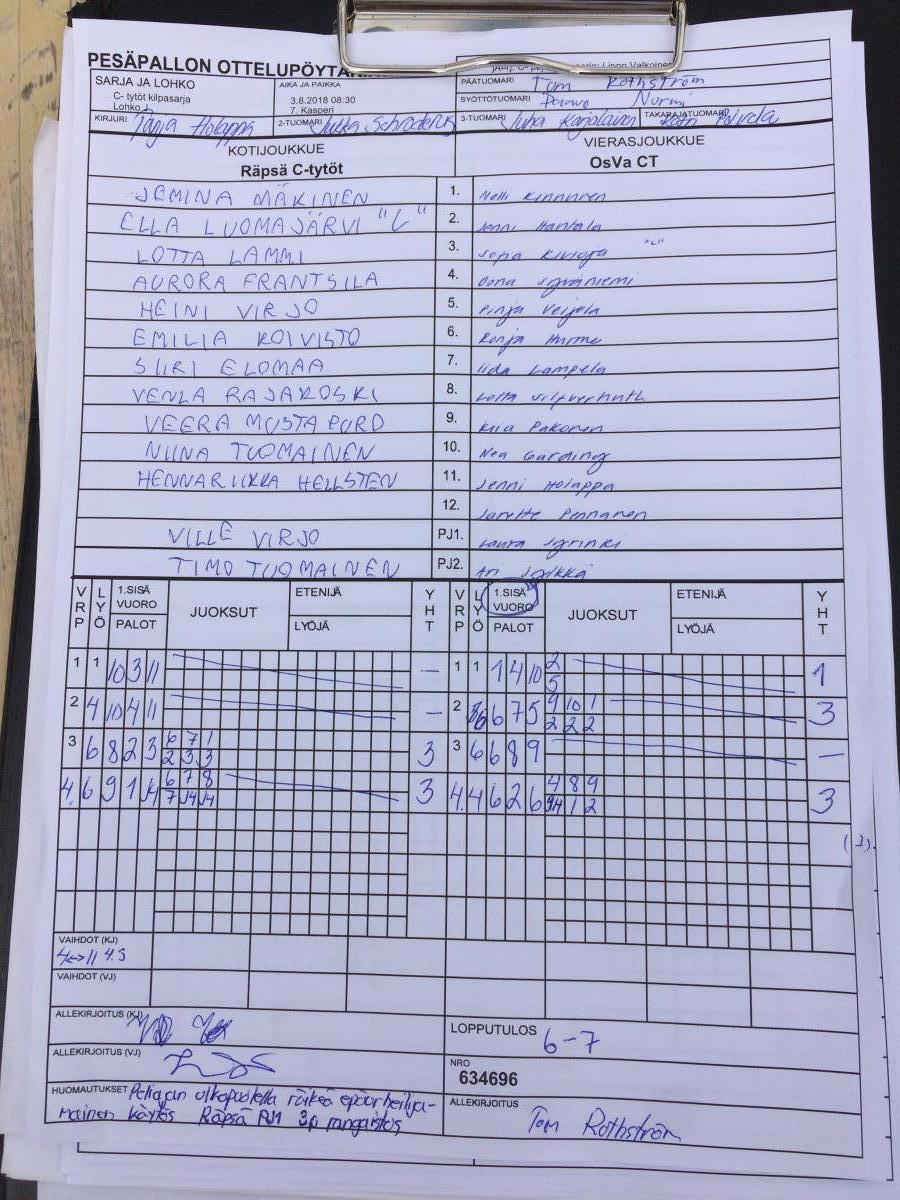 PESÄPALLON OTTELUPÖYTÄ
SARJA JA LOHKO
C- tytöt kilpasarja
Lohko
AIKA JA PAIKKA
3.8.2018 08:30
7. Kasperi
PÄÄTUOMARI Tom Rothström
SYÖTTÖTUOMARI Paavo Nurmi
KIRJURI Holappa
2-TUOMARI Jukka Schroderus
3-TUOMARI Juha Karjolainen
TAKARAJATUOMARI
KOTIJOUKKUE
Räpsä C-tytöt
VIERASJOUKKUE
OsVa CT
JEMINA MÄKINEN 1. Nelli Kinnunen
ELLA LUOMAJÄRVI "L" 2. Jenni Hantala
LOTTA LAMMI 3. Sofia Kivioja "L"
AURORA FRANTSILA 4. Oona
HEINI VIRJO 5. Pinja Veijola
EMILIA KOIVISTO 6. Ronja Hurme
SIIRI ELOMAA 7. Iida Lampela
VENLA RAJAKOSKI 8. Lotta
VEERA MUSTAPURO 9. Kiia Pakonen
NIINA TUOMAINEN 10. Nea Gärding
HENNARIIKKA HELLSTEN 11. Jenni Holappa
12. Pennanen
VILLE VIRJO PJ1. Laura
TIMO TUOMAINEN PJ2. Ari
VRP LYÖ 1.SISÄ VUORO PALOT JUOKSUT ETENIJÄ LYÖJÄ YHT VRP LYÖ 1.SISÄ VUORO PALOT JUOKSUT ETENIJÄ LYÖJÄ YHT
1 1 10 3 11 – 1 1 1 4 10 2 1
5
2 4 10 4 11 – 2 6 7 5 9 10 1 3
2 2 2
3 6 8 2 3 6 7 1 3 3 6 6 8 9 –
2 3 3
4. 6 9 1 4 6 7 8 3 4. 4 6 2 6 4 8 9 3
7 4 4 1 2
VAIHDOT (KJ)
4<->11 4.S
VAIHDOT (VJ)
ALLEKIRJOITUS (KJ)
LOPPUTULOS 6-7
ALLEKIRJOITUS (VJ)
NRO
634696
HUOMAUTUKSET Peliajan ulkopuolella räikeä epäurheilija-
mainen käytös Räpsä PJ1 3p rangaistus
ALLEKIRJOITUS
Tom Rothström